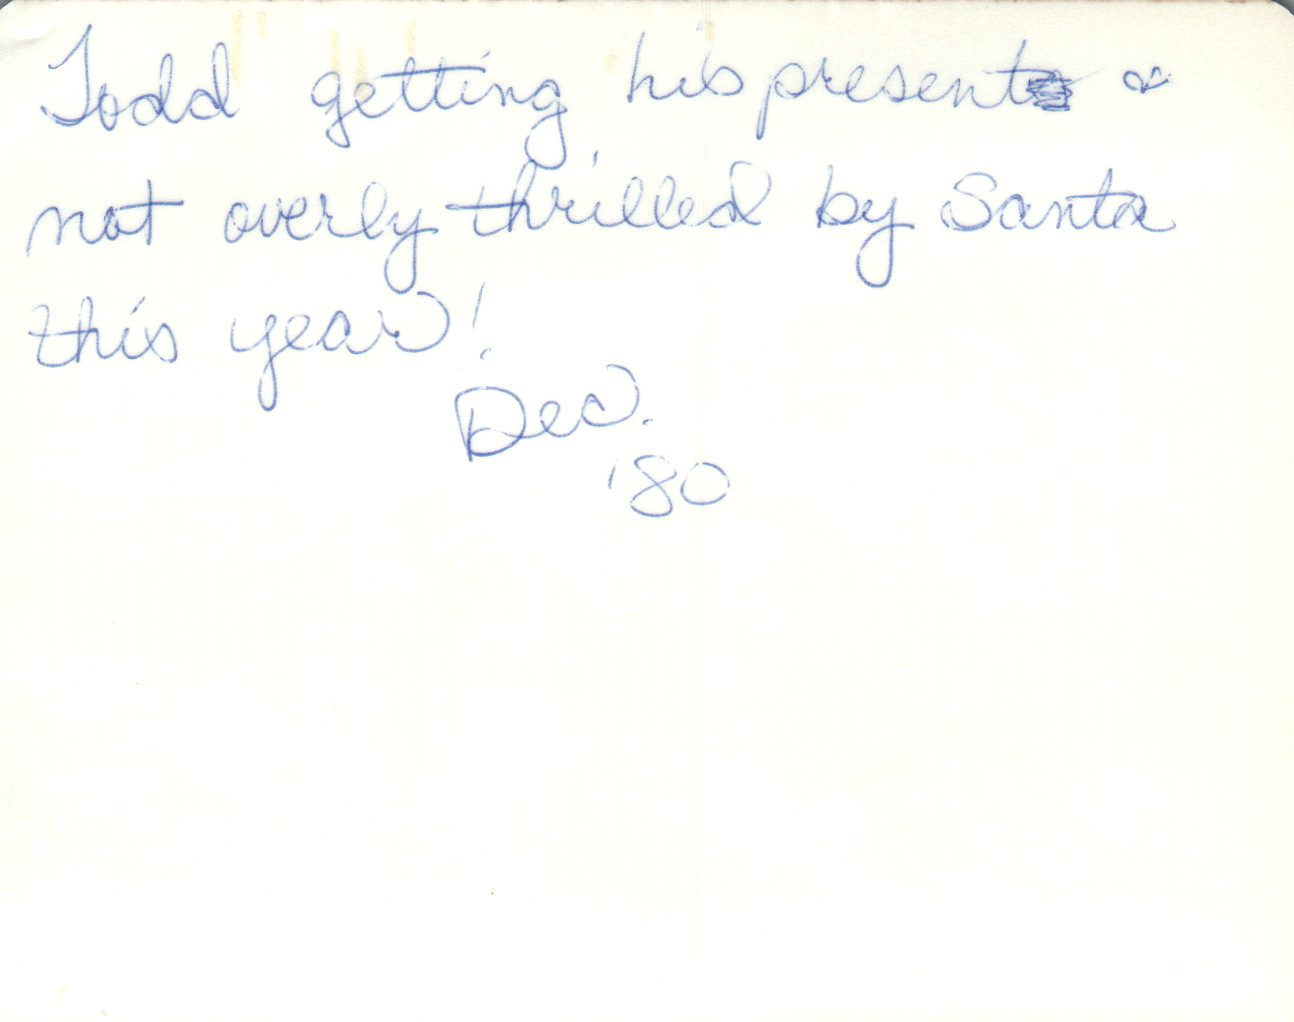 Todd getting his present &
not overly thrilled by Santa
this year!
Dec.
'80